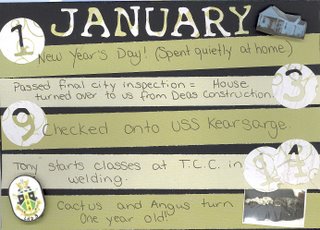 JANUARY
1
New Year's Day! (Spent quietly at home)
Passed final city inspection = House
turned over to us from Deas Construction.
3
9
Checked onto USS Kearsarge.
Tony starts classes at T.C.C. in
welding.
Cactus and Angus turn
One year old!